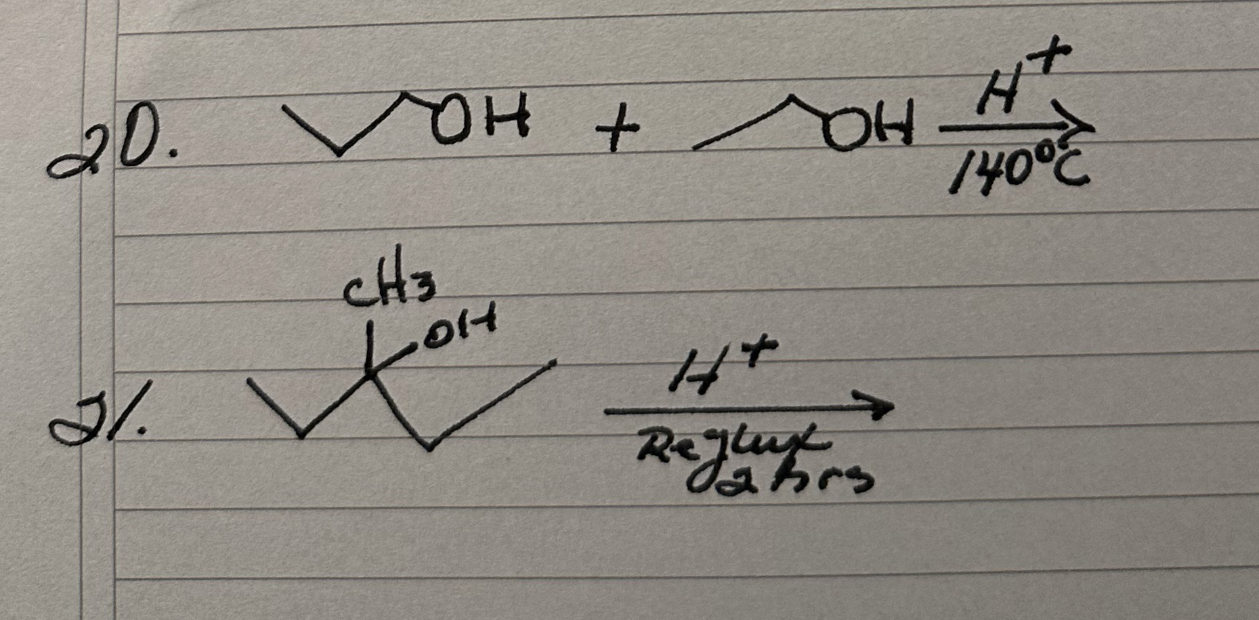 20. OH + OH H+
140°C
CH3
OH
21. H+
Reflux
2 hrs